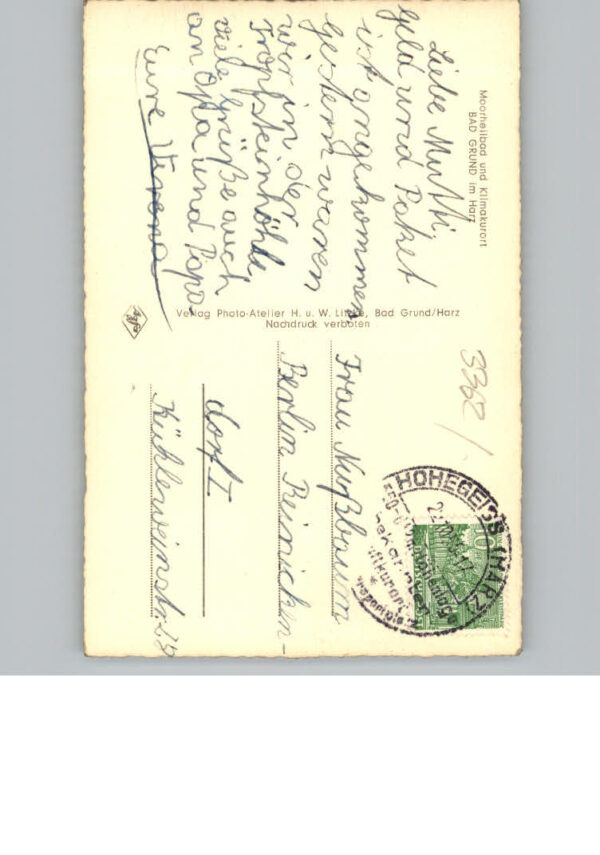 Moorheilbad und Klimakurort
BAD GRUND im Harz
Liebe Mutti,
Geld und Paket
ist angekommen,
gestern waren
wir in der
Tropfsteinhöhle,
viele Grüße auch
an Opa und Papa
Eure Verena
Verlag Photo-Atelier H. u. W. Bad Grund/Harz
Nachdruck verboten
Agfa
3362/
HOHEGEISS (HARZ)
10
Frau Nußbaum
Berlin Reinicken-
dorf I
Kühleweinstr.